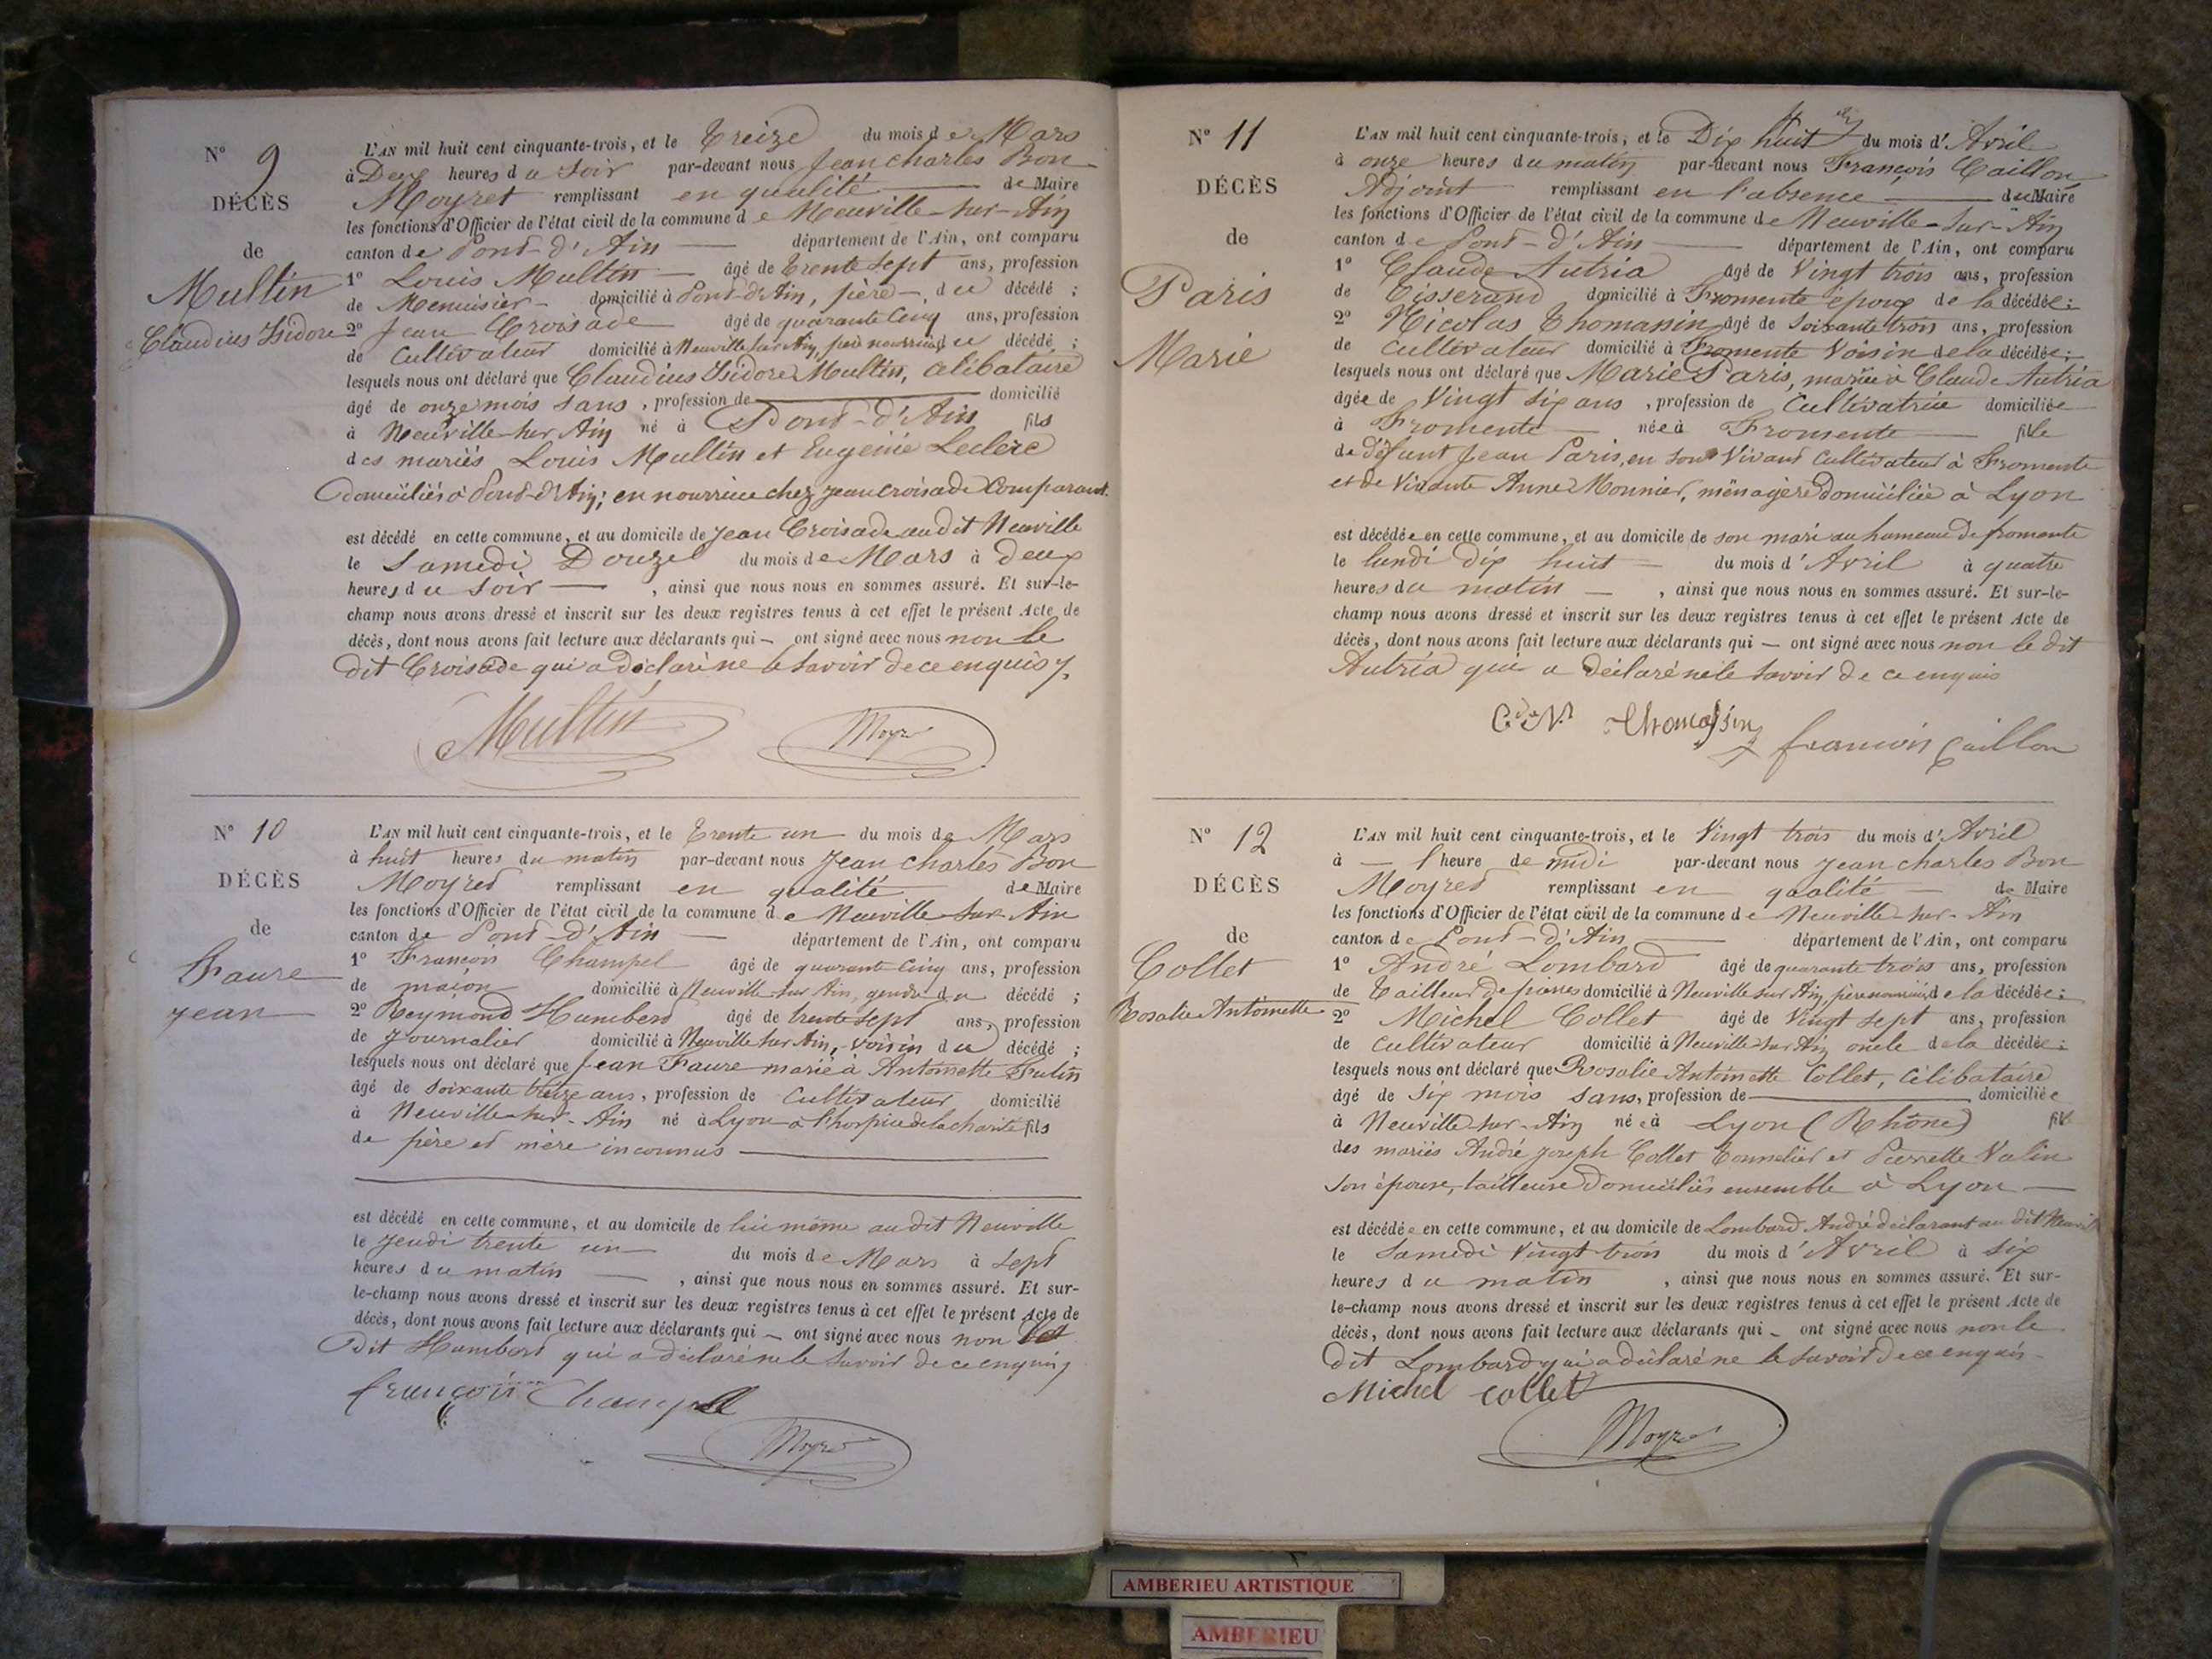 N° 9
DÉCÈS
de
Multin
Claudius Isidore
L'AN mil huit cent cinquante-trois, et le Treize du mois de Mars
à Deux heures du Soir par-devant nous Jean Charles Bon
Moyret remplissant en qualité de Maire
les fonctions d'Officier de l'état civil de la commune de Neuville-sur-Ain
canton de Pont-d'Ain département de l'Ain, ont comparu
1° Louis Multin âgé de trente sept ans, profession
de Menuisier domicilié à Pont-d'Ain, père du décédé ;
2° Jean Croisade âgé de quarante cinq ans, profession
de Cultivateur domicilié à Neuville sur Ain, père nourricier du décédé ;
lesquels nous ont déclaré que Claudius Isidore Multin, célibataire
âgé de onze mois sans, profession de domicilié
à Neuville-sur Ain né à Pont-d'Ain fils
des mariés Louis Multin et Eugénie Leclerc
domiciliés à Pont-d'Ain; en nourrice chez Jean Croisade Comparant.
est décédé en cette commune, et au domicile de Jean Croisade audit Neuville
le Samedi Douze du mois de Mars à deux
heures du Soir , ainsi que nous nous en sommes assuré. Et sur-le-
champ nous avons dressé et inscrit sur les deux registres tenus à cet effet le présent Acte de
décès, dont nous avons fait lecture aux déclarants qui — ont signé avec nous non le
dit Croisade qui a déclaré ne le savoir de ce enquis
Multin Moyret
N° 10
DÉCÈS
de
Faure
Jean
L'AN mil huit cent cinquante-trois, et le Trente un du mois de Mars
à huit heures du matin par-devant nous Jean Charles Bon
Moyret remplissant en qualité de Maire
les fonctions d'Officier de l'état civil de la commune de Neuville-sur-Ain
canton de Pont-d'Ain département de l'Ain, ont comparu
1° François Champel âgé de quarante cinq ans, profession
de maçon domicilié à Neuville sur Ain, gendre du décédé ;
2° Reymond Humbert âgé de trente sept ans, profession
de Journalier domicilié à Neuville sur Ain, voisin du décédé ;
lesquels nous ont déclaré que Jean Faure marié à Antoinette
âgé de soixante treize ans, profession de Cultivateur domicilié
à Neuville-sur-Ain né à Lyon à l'hospice de la charité fils
de père et mère inconnus
est décédé en cette commune, et au domicile de lui même audit Neuville
le Jeudi trente un du mois de Mars à sept
heures du matin , ainsi que nous nous en sommes assuré. Et sur-
le-champ nous avons dressé et inscrit sur les deux registres tenus à cet effet le présent Acte de
décès, dont nous avons fait lecture aux déclarants qui — ont signé avec nous non le
Dit Humbert qui a déclaré ne le savoir de ce enquis
françois Champell
Moyret
N° 11
DÉCÈS
de
Paris
Marie
L'AN mil huit cent cinquante-trois, et le Dix huit du mois d'Avril
à onze heures du matin par-devant nous François Caillon
Adjoint remplissant en l'absence du Maire
les fonctions d'Officier de l'état civil de la commune de Neuville-sur-Ain
canton de Pont-d'Ain département de l'Ain, ont comparu
1° Claude Autria âgé de Vingt trois ans, profession
de Tisserand domicilié à Fromente époux de la décédée ;
2° Nicolas Thomassin âgé de Soixante trois ans, profession
de Cultivateur domicilié à Fromente Voisin de la décédée ;
lesquels nous ont déclaré que Marie Paris, mariée à Claude Autria
âgée de Vingt six ans, profession de Cultivatrice domiciliée
à Fromente née à Fromente fille
de défunt Jean Paris, en son Vivant Cultivateur à Fromente
et de Vivante Anne Monnier, ménagère domiciliée à Lyon
est décédée en cette commune, et au domicile de son mari au hameau de fromente
le lundi dix huit du mois d'Avril à quatre
heures du matin , ainsi que nous nous en sommes assuré. Et sur-le-
champ nous avons dressé et inscrit sur les deux registres tenus à cet effet le présent Acte de
décès, dont nous avons fait lecture aux déclarants qui — ont signé avec nous non le dit
Autria qui a déclaré ne le savoir de ce enquis
Thomassin françois Caillon
N° 12
DÉCÈS
de
Collet
Rosalie Antoinette
L'AN mil huit cent cinquante-trois, et le Vingt trois du mois d'Avril
à — l'heure de midi par-devant nous Jean Charles Bon
Moyret remplissant en qualité de Maire
les fonctions d'Officier de l'état civil de la commune de Neuville-sur-Ain
canton de Pont-d'Ain département de l'Ain, ont comparu
1° André Lombard âgé de quarante trois ans, profession
de Tailleur de pierres domicilié à Neuville sur Ain, père nourricier de la décédée ;
2° Michel Collet âgé de Vingt sept ans, profession
de Cultivateur domicilié à Neuville sur Ain oncle de la décédée ;
lesquels nous ont déclaré que Rosalie Antoinette Collet, Célibataire
âgé de Six mois sans, profession de domiciliée
à Neuville-sur-Ain née à Lyon (Rhône) fille
des mariés André Joseph Collet Tonnelier et Pierrette Valin
son épouse, tailleuse domiciliés ensemble à Lyon
est décédée en cette commune, et au domicile de Lombard André déclarant au dit Neuville
le Samedi Vingt trois du mois d'Avril à six
heures du matin , ainsi que nous nous en sommes assuré. Et sur-
le-champ nous avons dressé et inscrit sur les deux registres tenus à cet effet le présent Acte de
décès, dont nous avons fait lecture aux déclarants qui — ont signé avec nous non le
dit Lombard qui a déclaré ne le savoir de ce enquis
Michel collet
Moyret
AMBERIEU ARTISTIQUE
AMBERIEU